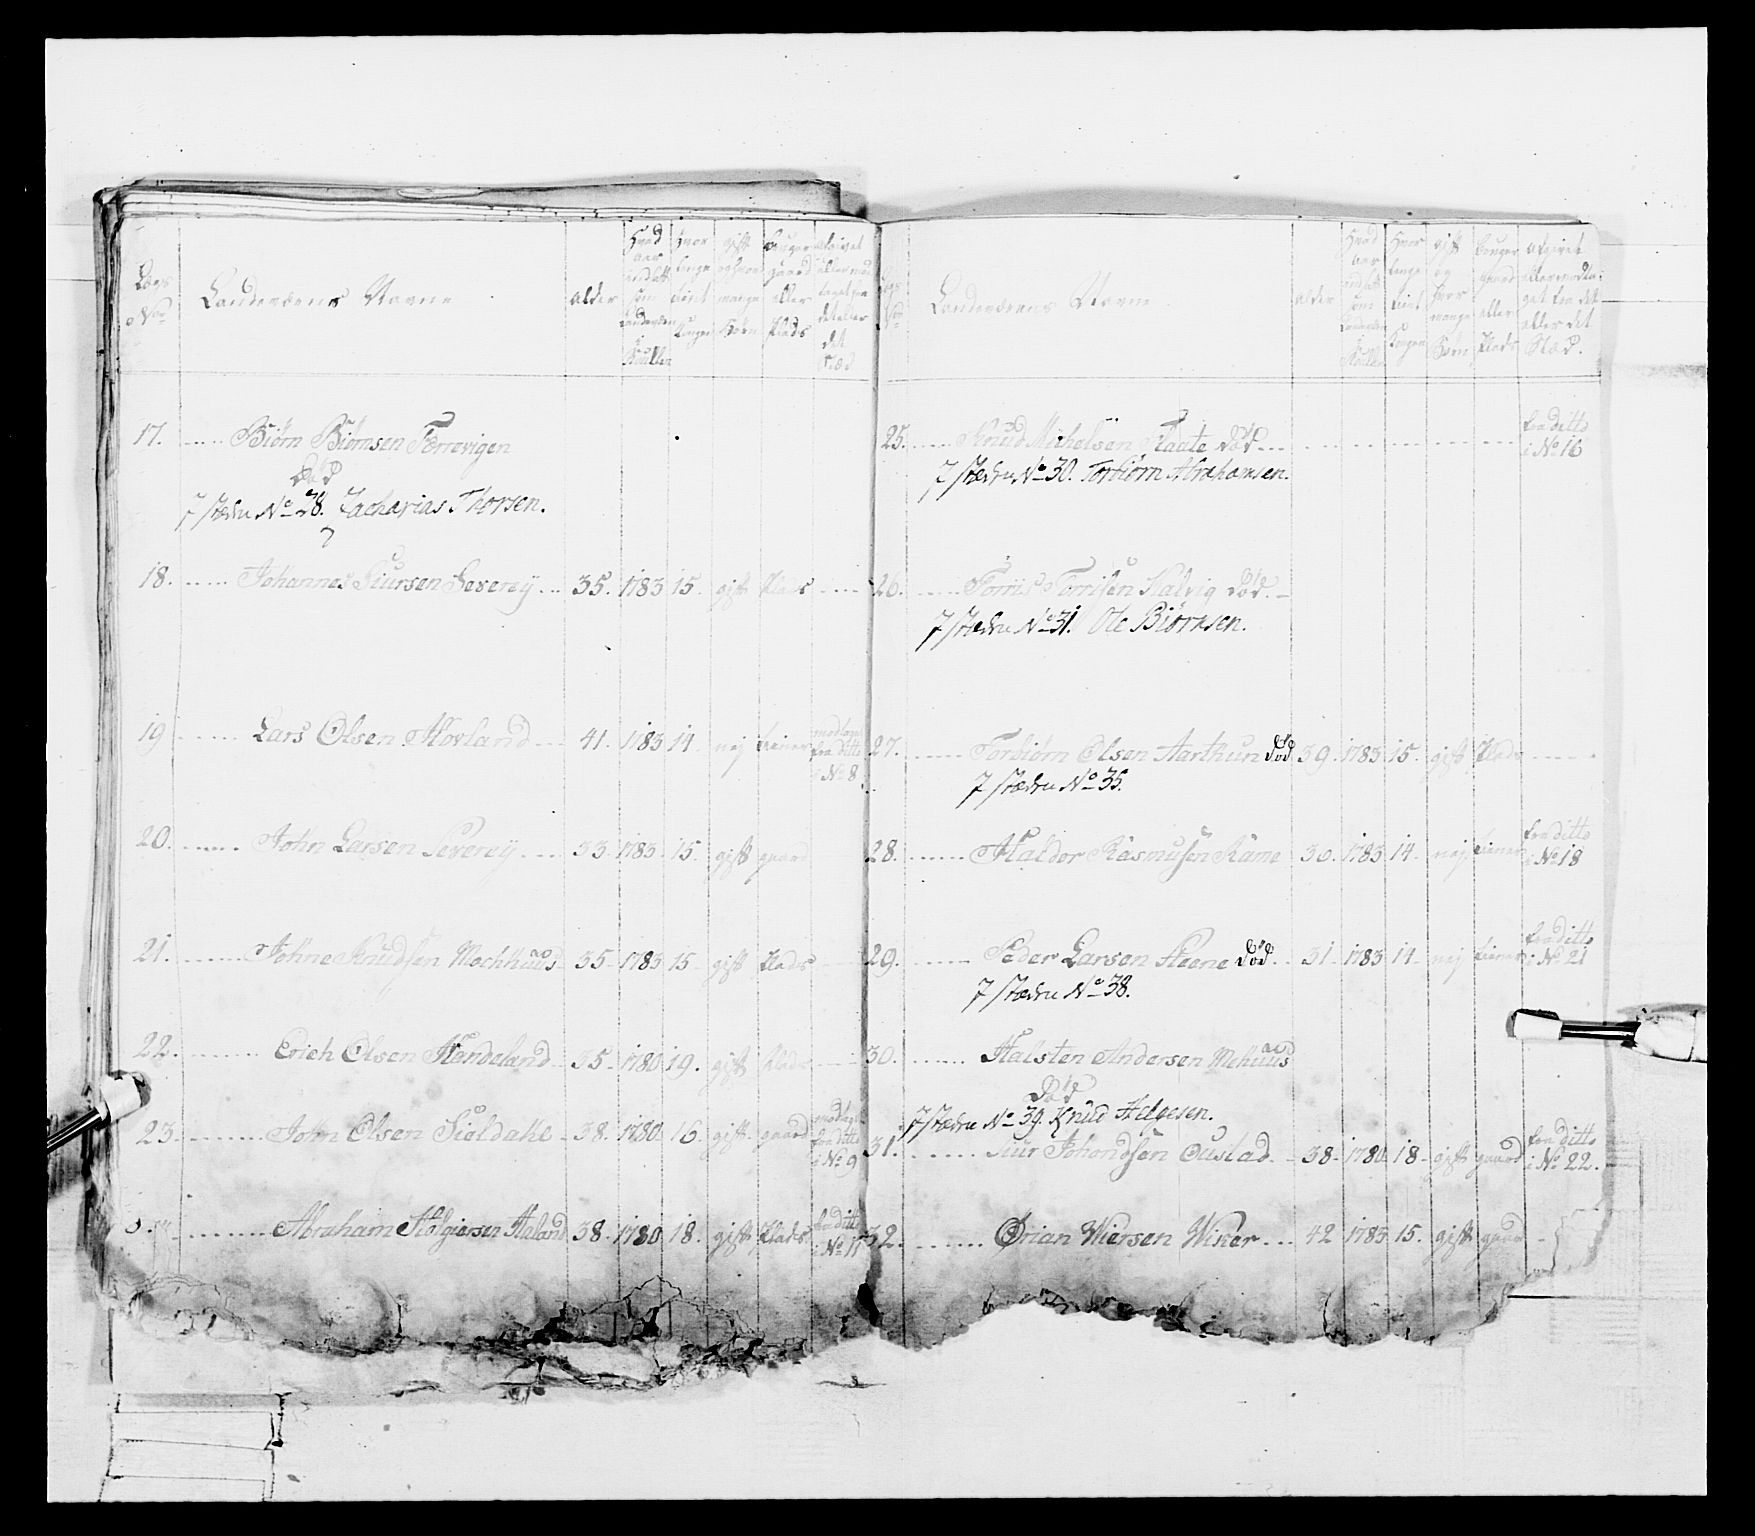 Laugs No
Landværens Navne
alder
Hvad aar indsatt som Landværn Knudlen
Hvor lenge tient Kongen
gift og hvor mange Børn
bruger gaard eller Plads
17. Biørn Biørnsen Torrevigen
død
I stæden No 28. Zacharias Thorsen.
18. Johannes Siursen Severeÿ 35. 1783 15. gift Plads
19 Lars Olsen Hovland 41. 1783 14 nej tiener modtagen fra ditto i No 8.
20. John Larsen Severeÿ 33. 1783. 15. gift gaard
21. Johne Knudsen Mochhuus 35 1783 15 gift Plads
22. Erich Olsen Handeland 35 1780 19. gift Plads
23. John Olsen Sieldahl 38. 1780. 16. gift. gaard modtagen fra ditto i No 9
Abraham Helgiersen Haland 38. 1780 18. gift Plads fra ditto i No 11
Laugs No
Landværens Navne
alder
Hvad aar indsatt som Landværn
Hvor lenge tient Kongen
gift og hvor mange Børn
bruger gaard eller Plads
afgivet eller modta- get fra det eller det Stæd.
25. Knud Michelsen Taate død fra ditto i No 16
I stæden No 30. Torbiørn Abrahamsen.
26. Torris Torrisen Halvig død.
I stæden No 31. Ole Biørnsen.
27. Torbiørn Olsen Aarthun død 39. 1783 15. gift Plads
I stæden No 35.
28. Haldor Rasmusen Rame 30. 1783 14. nej. tiener fra ditto i No 18
29. Peder Larsen Heene død. 31 1783 14 nej tiener fra ditto i No 21
I stæden No 38.
30. Halsten Andersen Mehuus
død
I stæden No 39. Knud Helgesen.
31. Siur Johondsen Oustad 38. 1780. 18 gift gaard fra ditto i No 22.
32. Ørian Wiersen Wiker 42 1783 15. gift gaard